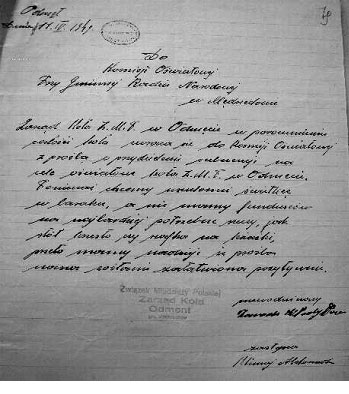 Odmęt
dnia 11. IV. 1949
Do
Komisji Oświatowej
Przy Gminnej Radzie Narodowej
w
Zarząd Koła Z.M.P. w Odmęcie w porozumieniu
całości koła zwraca się do Komisji Oświatowej
z prośbą o przydzielenie subwencji na
cele oświatowe koła Z.M.P. w Odmęcie.
Ponieważ chcemy urządzić świetlicę
w baraku, a nie mamy funduszów
na najbardziej potrzebne rzeczy, jak
stół krzesła czy szafka na książki,
przeto mamy nadzieję iż prośba
nasza zostanie załatwiona przychylnie.
Związek Młodzieży Polskiej
Zarząd Koła
Odmęt
przewodniczący
zastępca